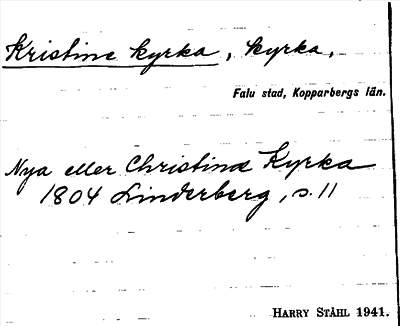 Kristine kyrka, kyrka,
Falu stad, Kopparbergs län.
Nya eller Christinæ Kyrka
1804 Linderberg, s. 11
HARRY STÅHL 1941.